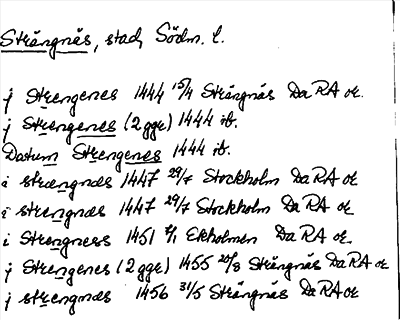 Strängnäs, stad, Södm. l.
j Strengenes 1444 15/4 Strängnäs Da RA or.
j Strengenes (2 ggr) 1444 ib.
Datum Strengenes 1444 ib.
i strængnæs 1447 29/7 Stockholm Da RA or
i strengnæs 1447 29/7 Stockholm Da RA or
i Strengness 1451 7/1 Ekholmen Da RA or.
j Strengenes (2 ggr) 1455 20/8 Strängnäs Da RA or
j strengnæs 1456 31/5 Strängnäs Da RA or